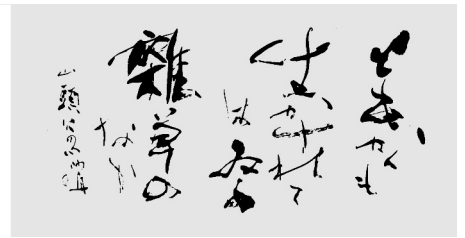 ともかくも
生かされて
は
雑草の
なか
山頭火の句